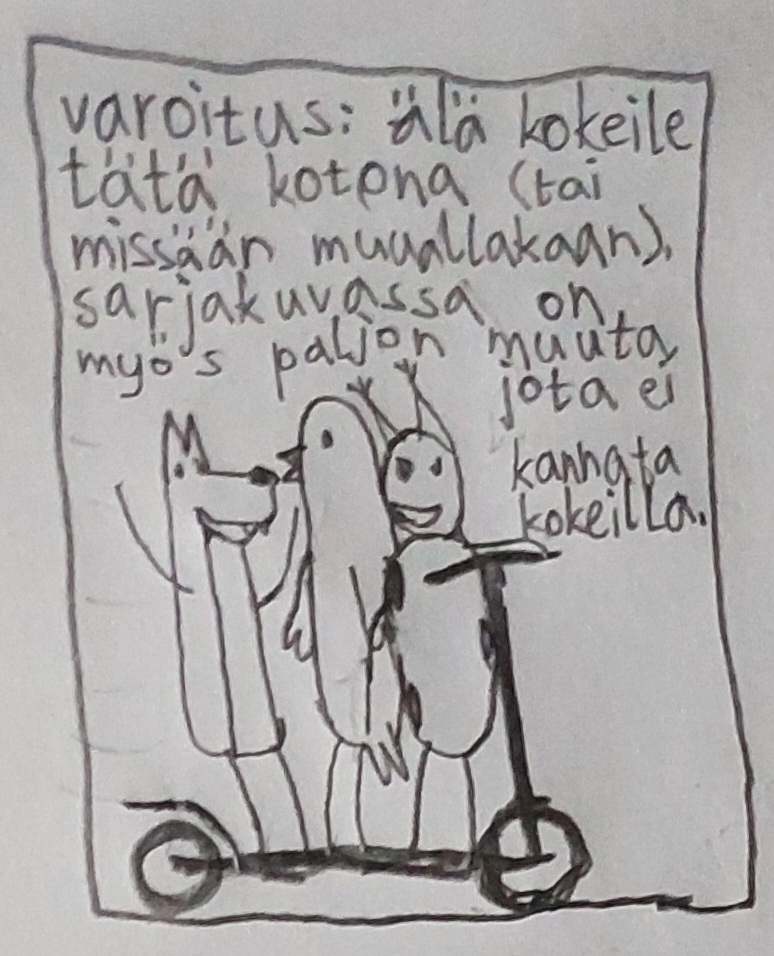 varoitus: älä kokeile
tätä kotona (tai
missään muuallakaan).
sarjakuvassa on
myös paljon muuta
jota ei
kannata
kokeilla.